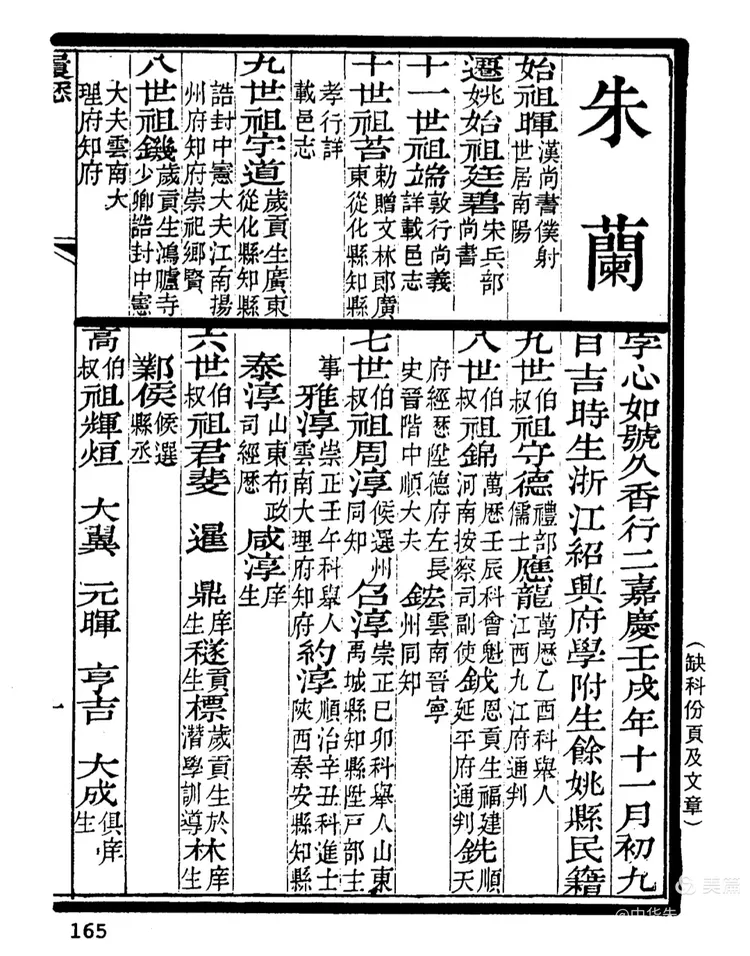 朱蘭
始祖暉漢尚書僕射世居南陽
遷姚始祖廷碧宋兵部尚書
十一世祖端敦行尚義立詳載邑志
十世祖苔勅贈文林郎廣東從化縣知縣
孝行詳載邑志
九世祖守道歲貢生廣東從化縣知縣
誥封中憲大夫江南揚州府知府崇祀鄉賢
八世祖鐖歲貢生鴻臚寺少卿誥封中憲
大夫雲南大理府知府
字心如號久香行二嘉慶壬戌年十一月初九
日吉時生浙江紹興府學附生餘姚縣民籍
九世伯叔祖守德禮部儒士應龍萬歷乙酉科舉人江西九江府通判
八世伯叔祖錦萬歷壬辰科會魁河南按察司副使鉞恩貢生福建延平府通判銑順天
府經歷陞德府左長史晉階中順大夫鋐雲南晉寧州同知
七世伯叔祖周淳候選州同知召淳崇正己卯科舉人山東禹城縣知縣陞戸部主
事雅淳崇正壬午科舉人雲南大理府知府約淳順治辛丑科進士陝西秦安縣知縣
泰淳山東布政司經歷咸淳庠生
六世伯叔祖君斐 暹 鼎庠生 䆳貢生標歲貢生於潛學訓導林庠生
鄴侯候選縣丞
高伯叔祖輝烜 大翼 元暉 亨吉 大成俱庠生
履歷
一
（缺科份頁及文章）
165
美篇